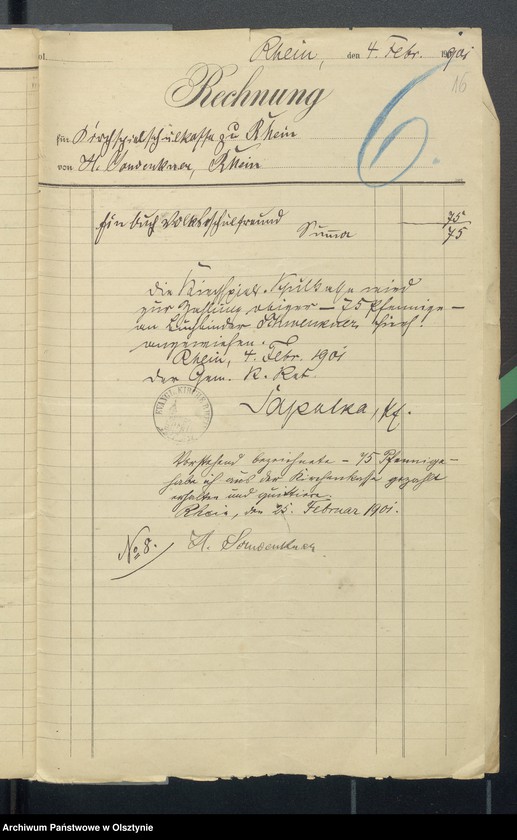 Rhein, den 4. Febr. 1901
16
Rechnung
6.
für Kirchspielschulkasse zu Rhein
von H. Rhein
Ein Buch Volksschulfreund 75
Summa 75
Die Kirchspiel-Schulkasse wird
zur Zahlung obiger – 75 Pfennige –
an Buchbinder hierf.
angewiesen.
Rhein, 4. Febr. 1901
Der Gem. K. Rat.
Czapulka, Pf.
Vorstehend bezeichnete – 75 Pfennige –
habe ich aus der Kirchenkasse gezahlt
erhalten und quittiere.
Rhein, den 25. Februar 1901.
No 8. H.
Archiwum Państwowe w Olsztynie